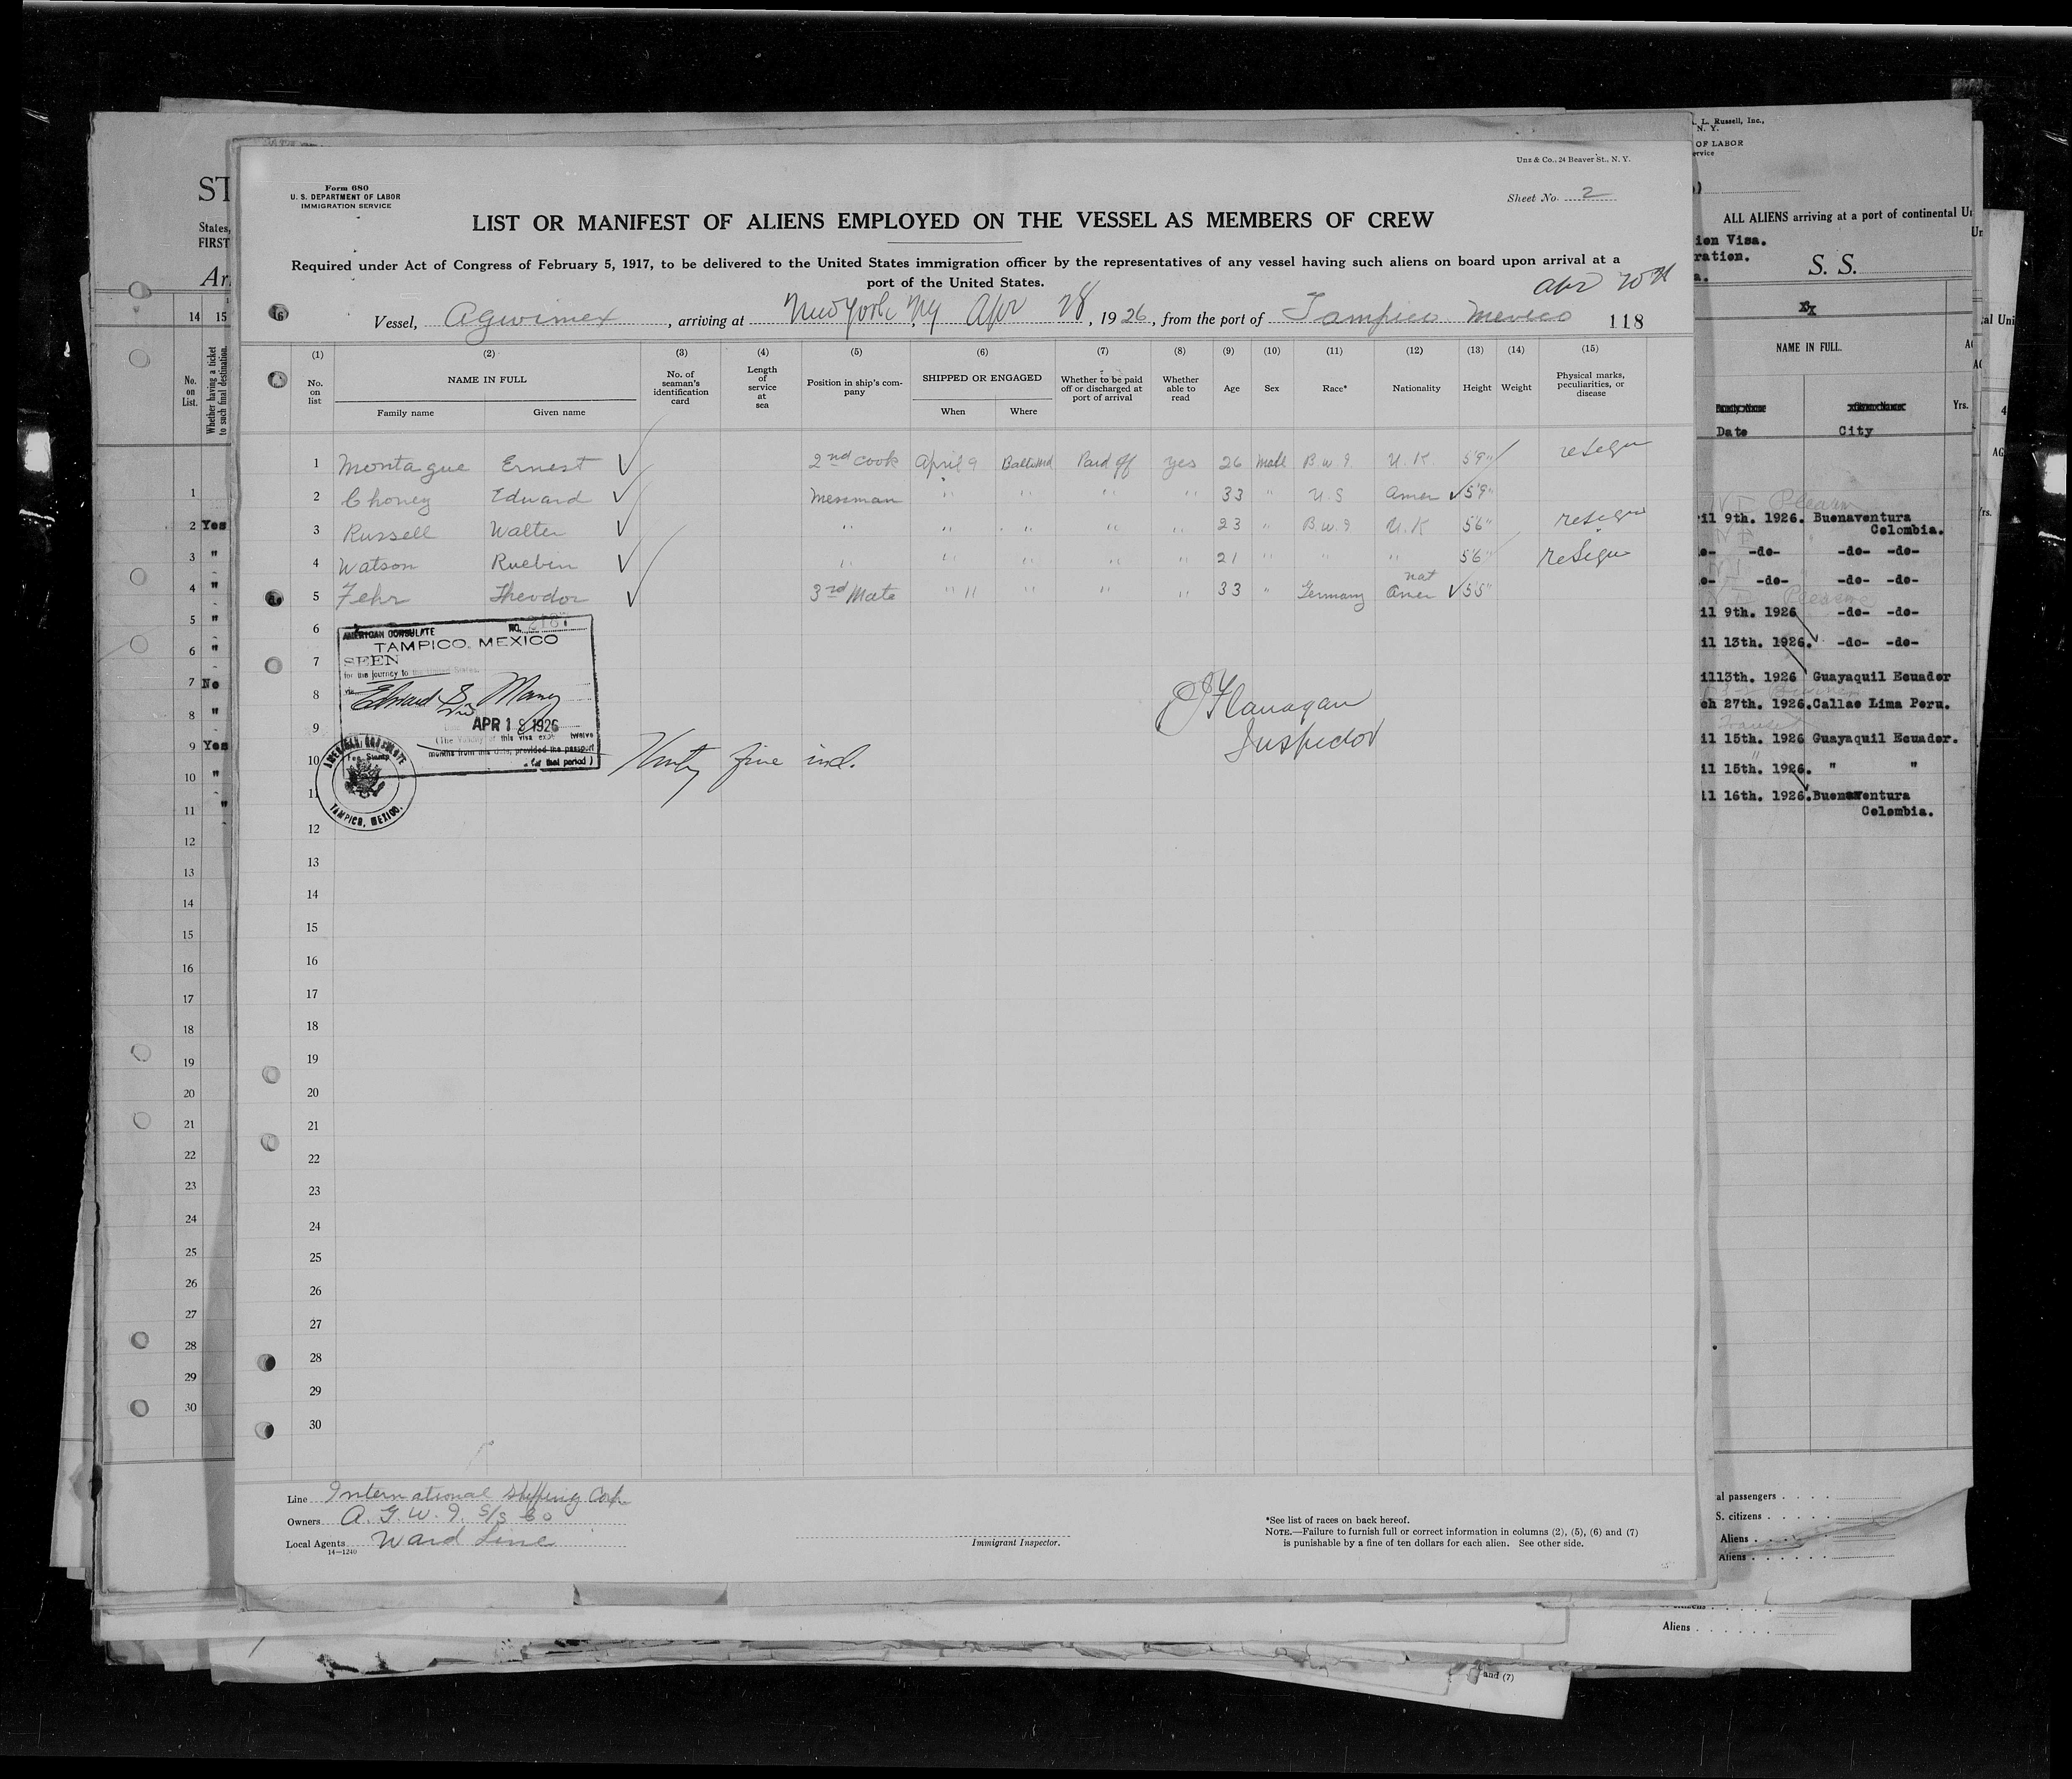 Unz & Co., 24 Beaver St., N. Y.
Form 680
U. S. DEPARTMENT OF LABOR
IMMIGRATION SERVICE
Sheet No. 2
LIST OR MANIFEST OF ALIENS EMPLOYED ON THE VESSEL AS MEMBERS OF CREW
Required under Act of Congress of February 5, 1917, to be delivered to the United States immigration officer by the representatives of any vessel having such aliens on board upon arrival at a
port of the United States.
Vessel, Agwimex, arriving at New York, NY Apr 28, 1926, from the port of Tampico Mexico 118
(1) (2) (3) (4) (5) (6) (7) (8) (9) (10) (11) (12) (13) (14) (15)
No. on list NAME IN FULL Family name Given name No. of seaman's identification card Length of service at sea Position in ship's company SHIPPED OR ENGAGED When Where Whether to be paid off or discharged at port of arrival Whether able to read Age Sex Race* Nationality Height Weight Physical marks, peculiarities, or disease
1 Montague Ernest ✓ 2nd cook April 9 Balto Md Paid off yes 26 Male B.W.I U.K 5'9" resign
2 Choney Edward ✓ Messman " " " " 33 " U.S Amer ✓ 5'9"
3 Russell Walter ✓ " " " " " 23 " B.W.I U.K 5'6" resign
4 Watson Ruebin ✓ " " " " " 21 " " " 5'6" resign
5 Fehr Theodor ✓ 3rd Mate " 11 " " " 33 " Germany nat Amer ✓ 5'5"
6
7
8
9
10
11
12
13
14
15
16
17
18
19
20
21
22
23
24
25
26
27
28
29
30
AMERICAN CONSULATE NO.
TAMPICO, MEXICO
SEEN
for the journey to the United States.
APR 18 1926
(The validity of this visa expires twelve
months from this date, provided the passport
for that period)
AMERICAN CONSULATE
Fee Stamp
TAMPICO, MEXICO.
Flanagan
Inspector
Line International Shipping Corp
Owners A. G. W. I. S/S Co
Local Agents Ward Line
14—1240
Immigrant Inspector.
*See list of races on back hereof.
NOTE.—Failure to furnish full or correct information in columns (2), (5), (6) and (7)
is punishable by a fine of ten dollars for each alien. See other side.
ST
States,
FIRST
Arr
14 15
No. on List.
Whether having a ticket to such final destination.
1
2 Yes
3 "
4 "
5 "
6 "
7 No
8 "
9 Yes
10 "
11 "
12
13
14
15
16
17
18
19
20
21
22
23
24
25
26
27
28
29
30
L. Russell, Inc.,
N. Y.
OF LABOR
ALL ALIENS arriving at a port of continental
ion Visa.
ration.
S. S.
NAME IN FULL.
Yrs.
Date City
il 9th. 1926. Buenaventura
Colombia.
-do- -do- -do-
-do- -do- -do-
il 9th. 1926 -do- -do-
il 13th. 1926. -do- -do-
il13th. 1926 Guayaquil Ecuador
ch 27th. 1926. Callao Lima Peru.
il 15th. 1926 Guayaquil Ecuador.
il 15th. 1926. " "
il 16th. 1926. Buenaventura
Colombia.
al passengers
S. citizens
Aliens
Aliens
Aliens
and (7)